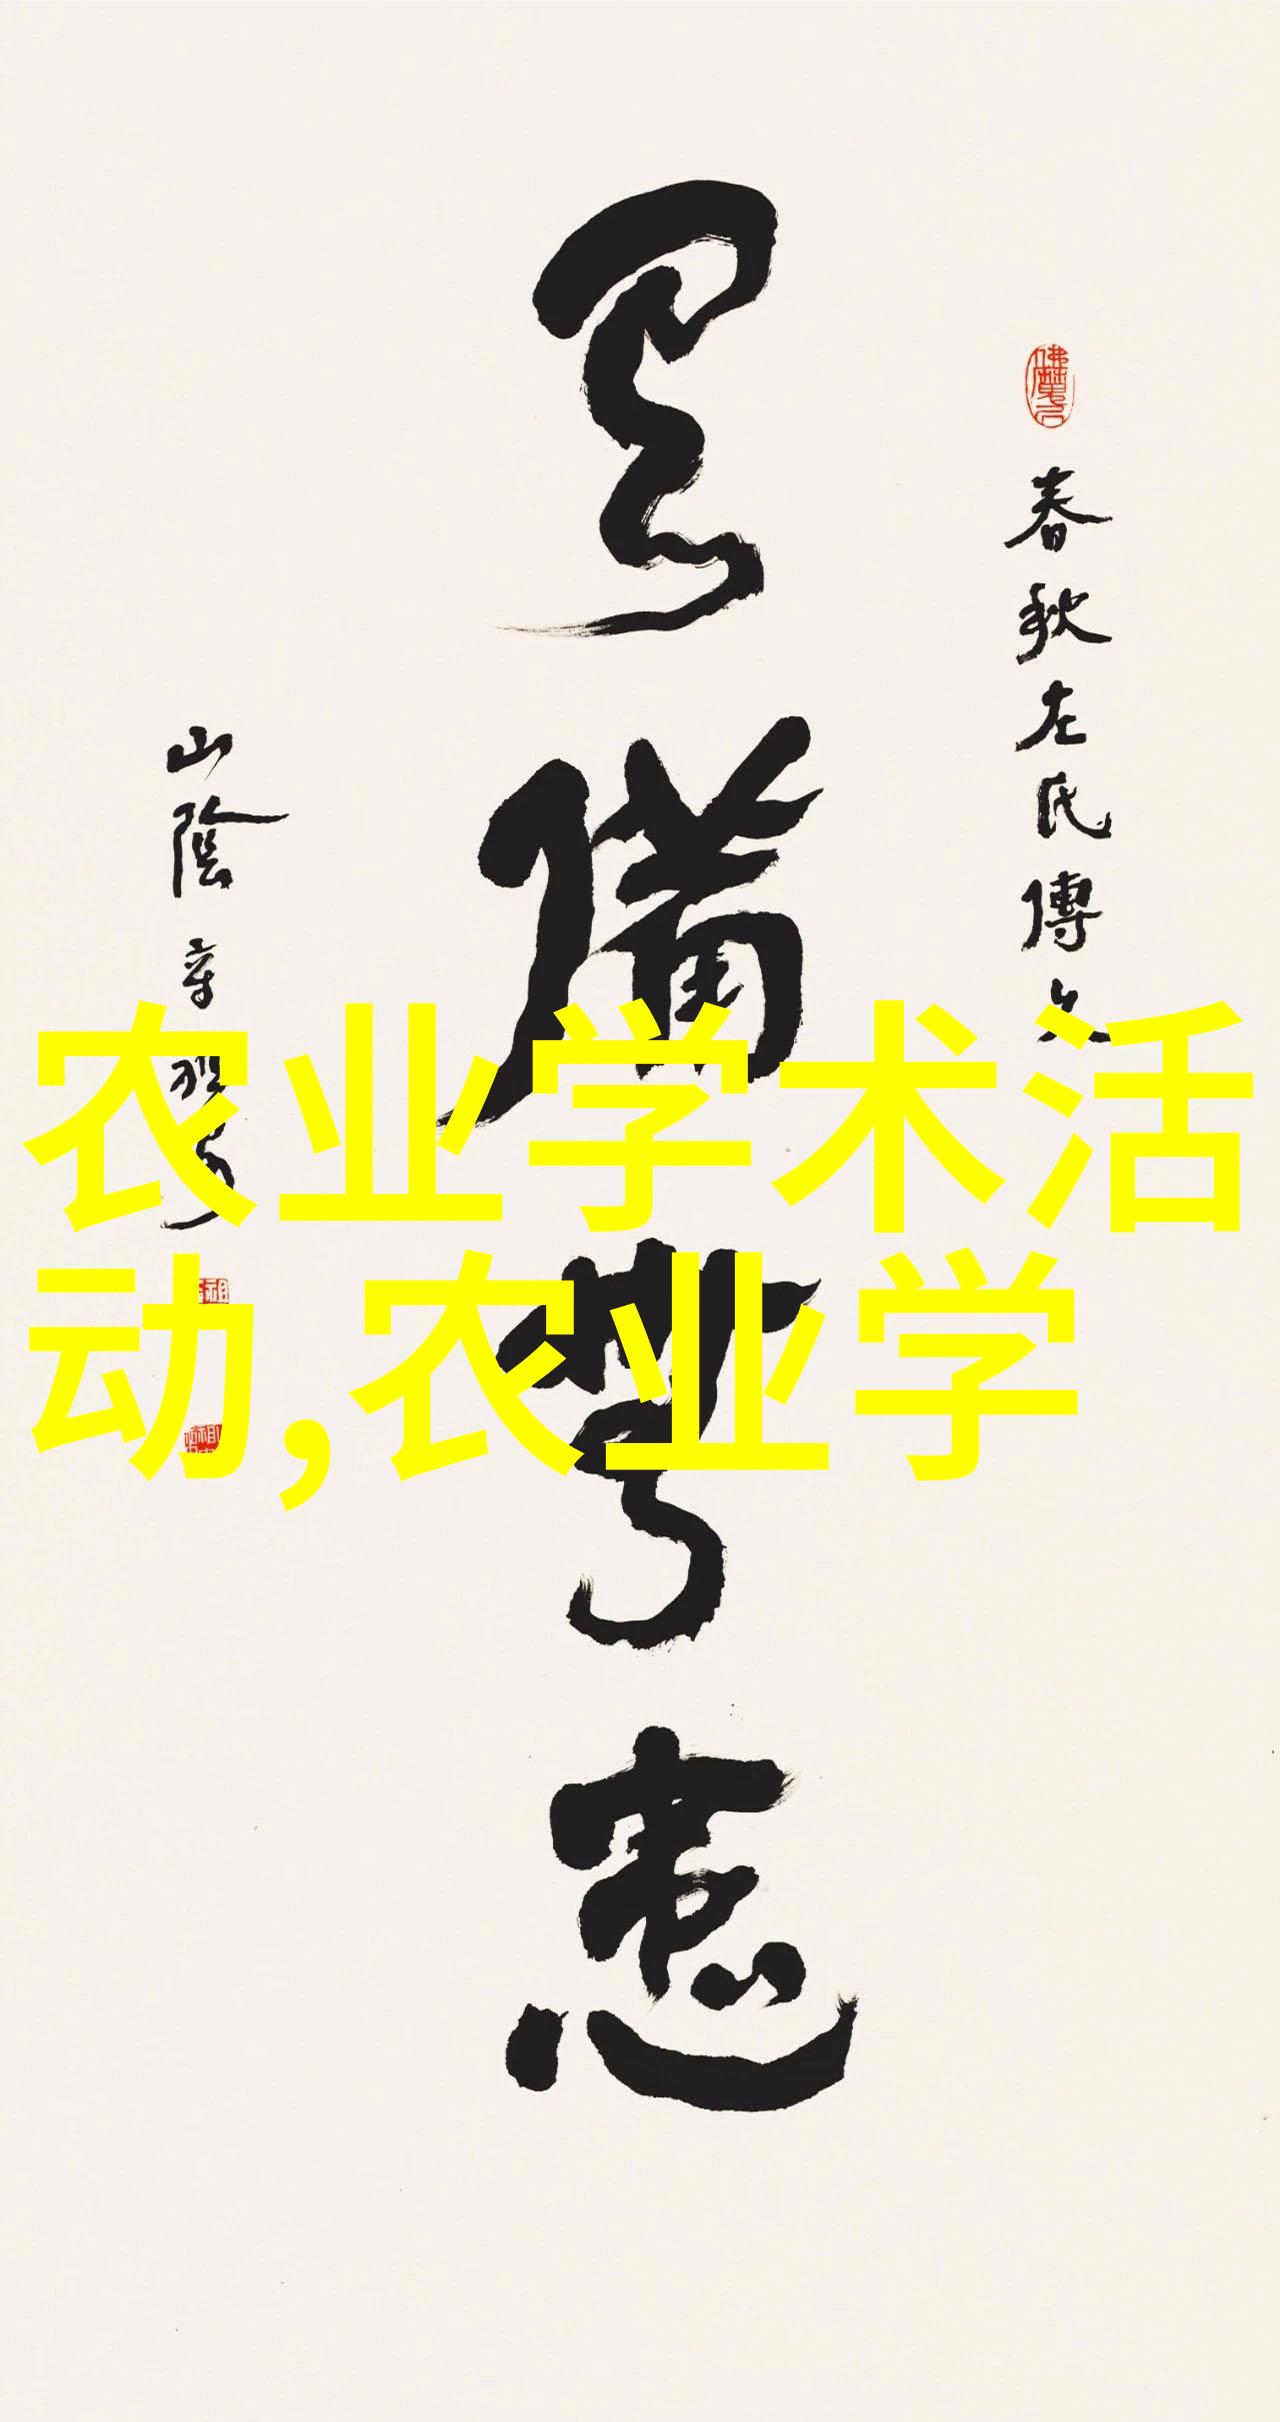 春秋左氏傳文
有備無患
山陰
农业学术活
动,农业学